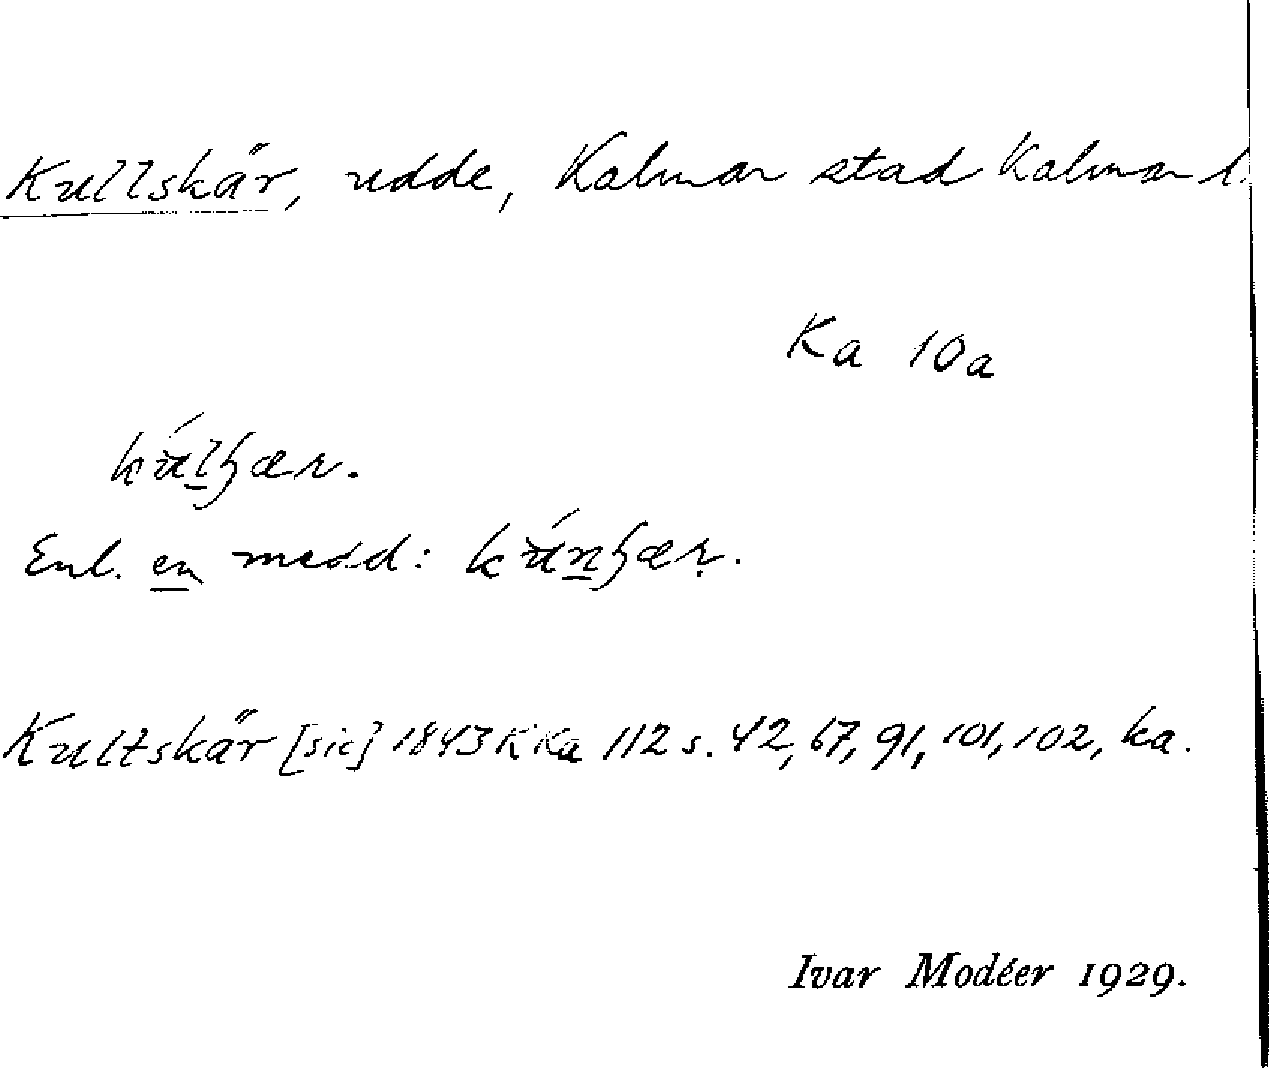 Kullskär, udde, Kalmar stad Kalmar l.
Ka 10a
Enl. en medd:
Kultskär [sic] 1843 K Ka 112 s. 42, 67, 91, 101, 102, ka.
Ivar Modéer 1929.